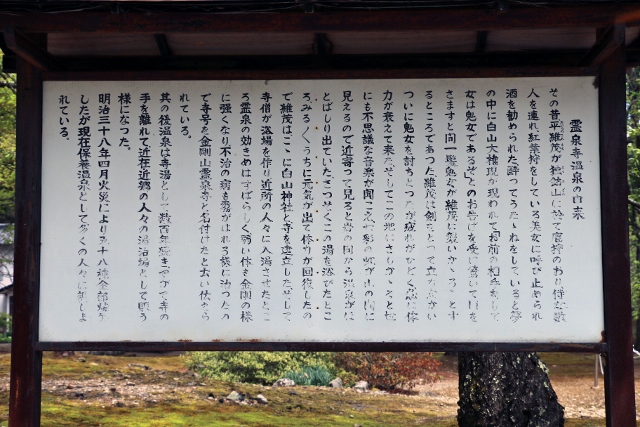 霊泉寺温泉の由来
その昔平維茂が独鈷山に於て富椋のおり侍女数
人を連れ紅葉狩をしている美女に呼び止められ
酒を勧められた酔ってうたゝねをしていると夢
の中に白山大権現が現われて「お前の相手をして
女は鬼女であるぞとのお告げを受け驚いて目を
さますと同一聴鬼女が維茂に襲いかゝろうとす
るところであった維茂は剣をとって立ち向かい
ついに鬼女を討ちとったが疲れがひどく急に体
力が衰えて来た。そしてこの地にさしかゝると世
にも不思議な音楽が聞こえ五彩の虹が山の間に
見えるので近寄って見ると岩の間から温泉がに
とばしり出ていた。さっそくこの湯を浴びたとこ
ろ、みるくうちに元気が出て体力が回復したの
で維茂はこゝに白山神社と寺を建立したそして
寺僧が浴場を作り近所の人々に入湯させたとこ
ろ霊泉の効きめはすばらしく弱い体も金剛の様
に強くなり不治の病も霧がはれる様に治ったの
で寺号を金剛山霊泉寺と名付けたと云い伝えら
れている。
其の後温泉は寺湯として数百年続きやがて寺の
手を離れて近在近郷の人々の湯治場として賑う
様になった。
明治三十八年四月火災により五十八棟全部焼失
したが現在保養温泉として多くの人々に親しま
れている。